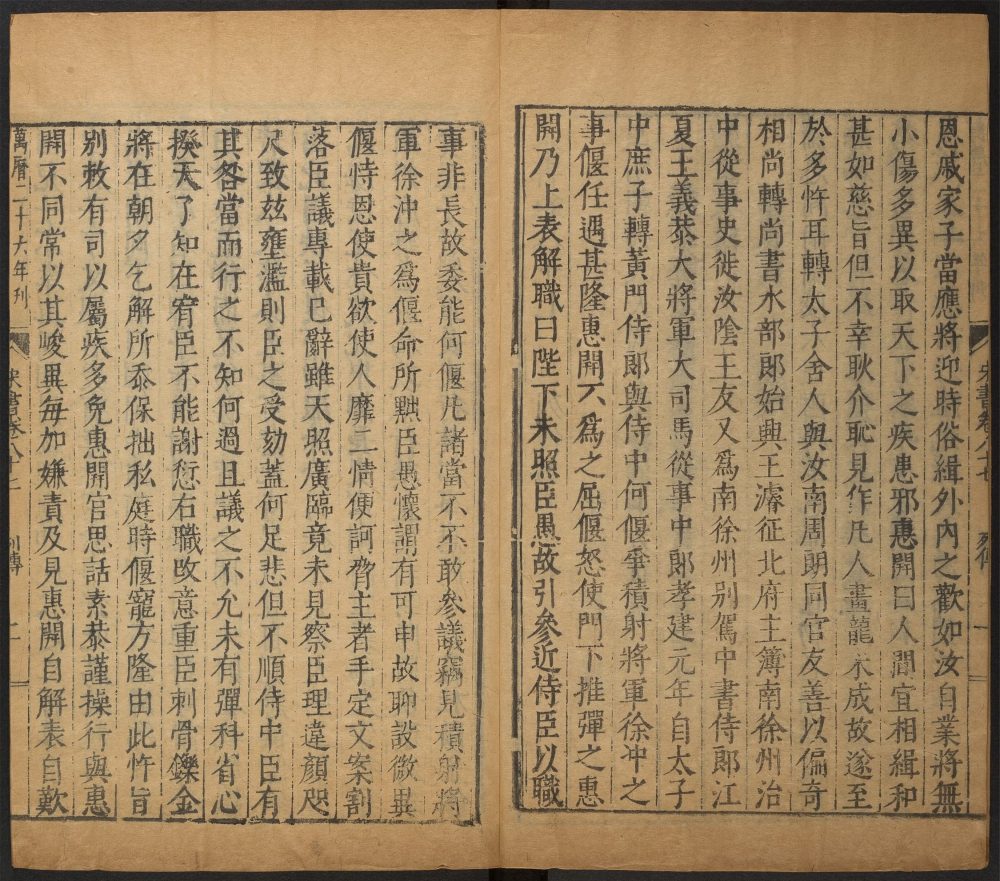 恩戚家子當應將迎時俗緝外內之歡如汝自業將無
小傷多異以取天下之疾患邪惠開曰人間宜相緝和
甚如慈旨但不幸耿介恥見作凡人畫龍未成故遂至
於多忤耳轉太子舍人與汝南周朗同官友善以偏奇
相尚轉尚書水部郎始興王濬征北府主簿南徐州治
中從事史徙汝陰王友又爲南徐州別駕中書侍郎江
夏王義恭大將軍大司馬從事中郎孝建元年自太子
中庶子轉黃門侍郎與侍中何偃爭積射將軍徐沖之
事偃任遇甚隆惠開不爲之屈偃怒使門下推彈之惠
開乃上表解職曰陛下未照臣愚故引參近侍臣以職
宋書卷八十七
列傳
一
事非長故委能何偃凡諸當不不敢參議竊見積射將
軍徐沖之爲偃命所黜臣愚懷謂有可申故聊設微異
偃恃恩使貴欲使人靡二情便訶脅主者手定文案割
落臣議專載已辭雖天照廣臨竟未見察臣理違顏咫
尺致玆壅濫則臣之受劾蓋何足悲但不順侍中臣有
其咎當而行之不知何過且議之不允未有彈科省心
揆天了知在宥臣不能謝愆右職攺意重臣刺骨鑠金
將在朝夕乞解所忝保拙私庭時偃寵方隆由此忤旨
別敕有司以屬疾多免惠開官思話素恭謹操行與惠
開不同常以其峻異每加嫌責及見惠開自解表自歎
萬曆二十六年刋
宋書卷八十七
列傳
二